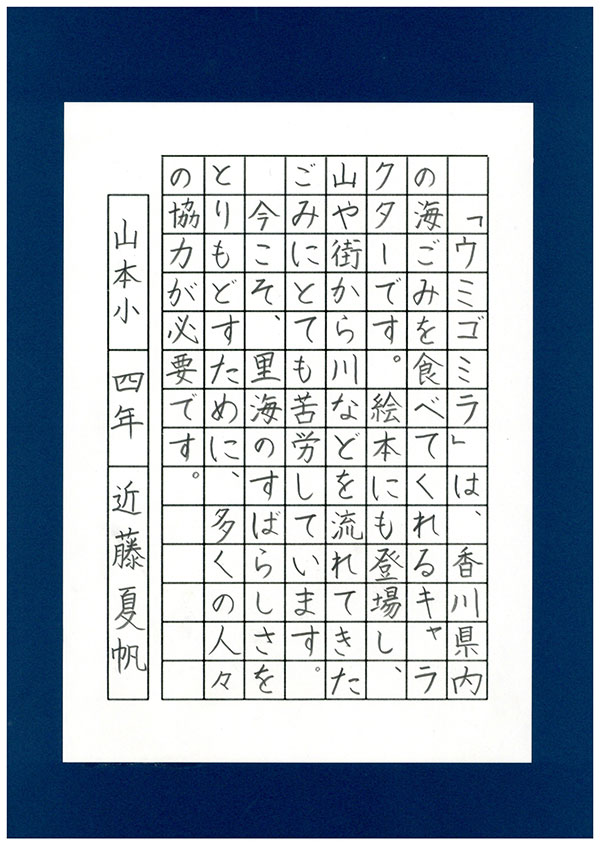 「ウミゴミラ」は、香川県内
の海ごみを食べてくれるキャラ
クターです。絵本にも登場し、
山や街から川などを流れてきた
ごみにとても苦労しています。
今こそ、里海のすばらしさを
とりもどすために、多くの人々
の協力が必要です。
山本小 四年 近藤夏帆